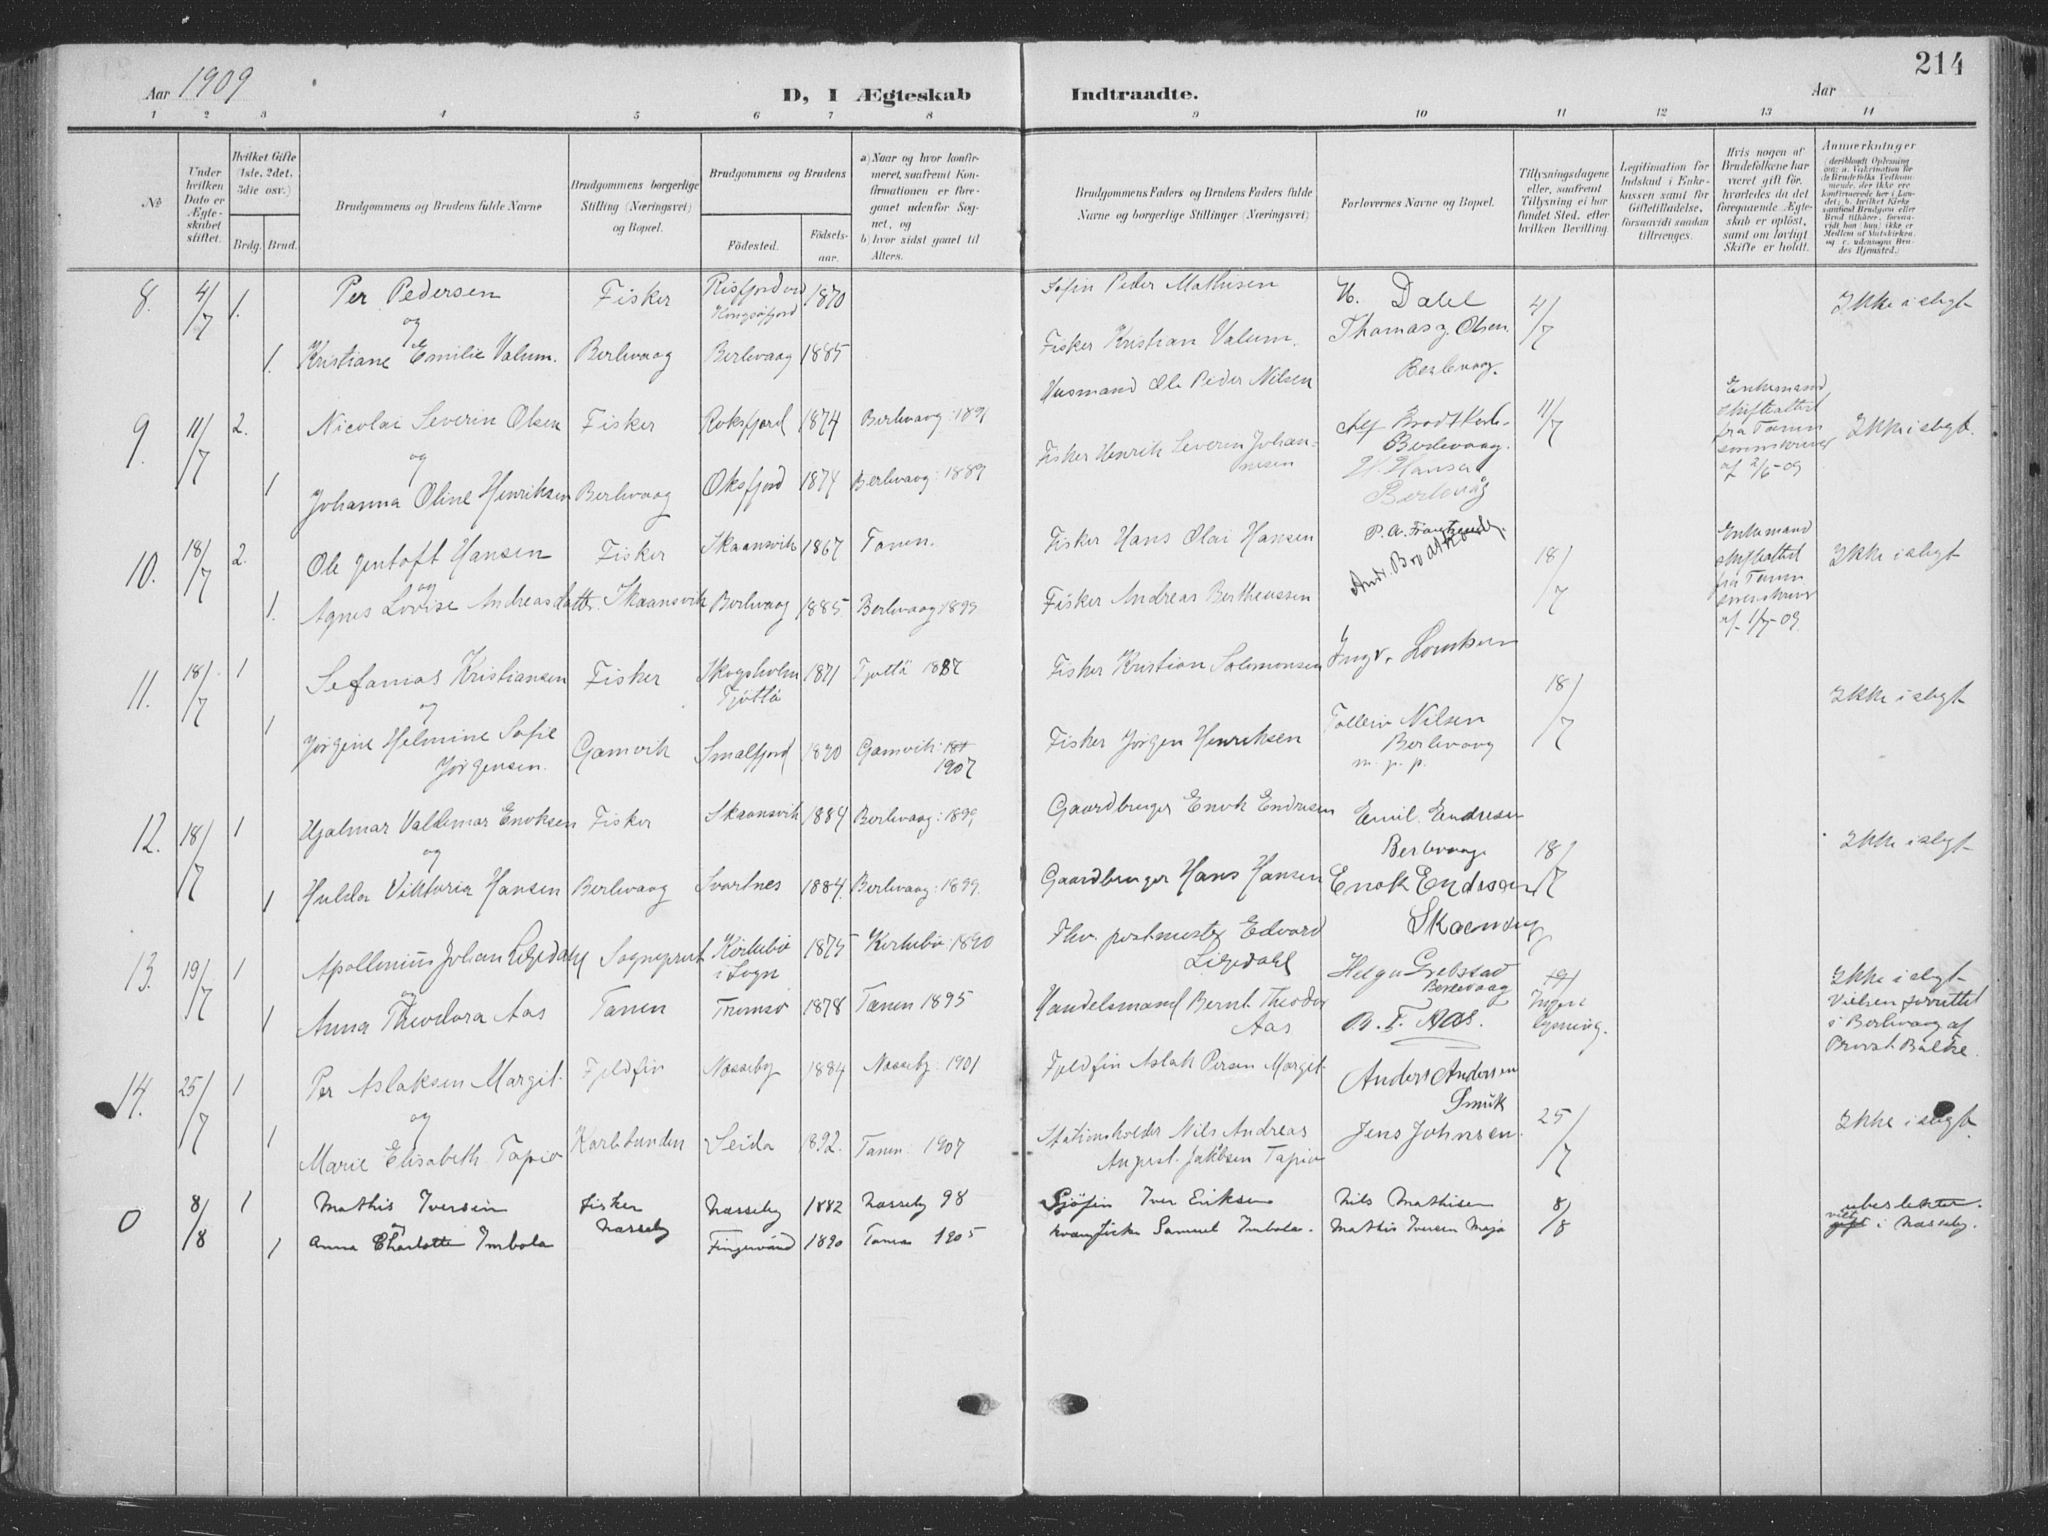 214
Aar 1909
D, I Ægteskab Indtraadte.
Aar
1 2 3 4 5 6 7 8 9 10 11 12 13 14
No
Under hvilken Dato er Ægteskabet stiftet.
Hvilket Gifte (1ste, 2det, 3die osv.)
Brdg. Brud.
Brudgommens og Brudens fulde Navne
Brudgommens borgerlige Stilling (Næringsvei) og Bopæl.
Brudgommens og Brudens
Fødested.
Fødselsaar.
a) Naar og hvor konfirmeret, saafremt Konfirmationen er foregaaet udenfor Sognet, og
b) hvor sidst gaaet til Alters.
Brudgommens Faders og Brudens Faders fulde Navne og borgerlige Stillinger (Næringsvei)
Forlovernes Navne og Bopæl.
Tillysningsdagene eller, saafremt Tillysning ei har fundet Sted, efter hvilken Bevilling.
Legitimation for Indskud i Enkekassen samt for Giftetilladelse, forsaavidt saadan tiltrænges.
Hvis nogen af Brudefolkene har været gift før, hvorledes da det foregaaende Ægteskab er opløst, samt om lovligt Skifte er holdt.
Anmerkninger
8. 4/7 1. Per Pedersen Fisker Risfjord ved Kongsøfjord 1870 Søfin Peder Mathisen H. Dahl 4/7 Ikke i slegt
og
1. Kristiane Emilie Valum. Berlevaag Berlevaag 1885 Fisker Kristian Valum. Thomas J. Olsen Berlevaag.
9. 11/7 2. Nicolai Severin Olsen Fisker Roksfjord 1874 Berlevaag: 1891 Husmand Ole Peder Nilsen Berlevaag. 11/7 Enkemand skifteattest fra Tanen sorenskriver af 2/6-09 Ikke i slegt.
og
1 Johanna Oline Henriksen Berlevaag Oksfjord 1874 Berlevaag: 1889 Fisker Henrik Severin Johannesen H. Hansen Berlevåg
10. 18/7 2. Ole Gentoft Hansen Fisker Skaansvik 1867 Tanen. Fisker Hans Olai Hansen P. A. 18/7 Enkemand skifteattest fra Tanen sorenskriver af 1/7-09. Ikke i slegt
og
1. Agnes Lovise Andreasdatter. Skaansvik Berlevaag 1885 Berlevaag 1899 Fisker Andreas Bertheussen Andr. Brodtkorb
11. 18/7 1 Sefanias Kristiansen Fisker Skogsholm Tjøtta 1871 Tjøtta 1887 Fisker Kristian Salomonsen Ingv. 18/7 Ikke i slegt
og
1 Jørgine Helmine Sofie Jørgensen. Gamvik Smalfjord 1890 Gamvik: 1907 Fisker Jørgen Henriksen Tollein Nilsen Berlevaag m. p. p.
12. 18/7 1 Hjalmar Valdemar Enoksen Fisker Skaansvik 1884 Berlevaag: 1899 Gaardbruger Enok Endresen Emil Endresen Berlevaag 18/7 Ikke i slegt
og
1 Hulda Viktoria Hansen Berlevaag Svartnes 1884 Berlevaag: 1899. Gaardbruger Hans Hansen Enok Endresen
13. 19/7 1 Apollonius Johan Ligedahl Sogneprest Kirkebø i Sogn 1875 Kirkebø 1890 Fhv. postmester Edvard Ligedahl Helga Grebstad Berlevaag 19/ Ingen lysning. Ikke i slegt Vielsen forrettet i Berlevaag af Provst Balke.
og
1 Anna Theodora Aas Tanen Tromsø 1878 Tanen 1895 Handelsmand Bernt Theodor Aas B. T. Aas.
14. 25/7 1 Per Aslaksen Margit. Fjeldfin Næsseby 1884 Næsseby: 1901 Fjeldfin Aslak Persen Margit. Anders Andersen Smuk 25/7 Ikke i slegt.
og
1 Marie Elisabeth Tapio Karlebunden Seida 1892. Tanen: 1907 Stationsholder Nils Andreas August Jakobsen Tapio Jens Johnsen.
0 8/8 1 Mathis Iversen Fisker Næsseby Næsseby 1882 Næsseby 98 Sjøfin Iver Eriksen Nils Mathisen 8/8 ubeslektet. viet i Næsseby.
og
1 Anna Charlotte Imbola 1890 Tanen 1905 Samuel Imbola. Mathis Iversen